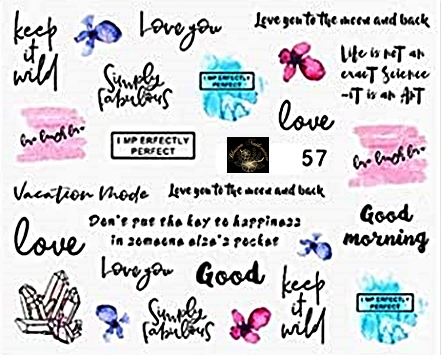 keep
it
wild
Love you
Love you to the moon and back
Simply
fabulous
I MPERFECTLY
PERFECT
Life is not an
exact Science
-it is an Art
love
I MPERFECTLY
PERFECT
57
Vacation Mode
Love you to the moon and back
Good
morning
love
Don't put the key to happiness
in someone else's pocket
Love you
Good
keep
it
wild
I MPERFECTLY
PERFECT
Simply
fabulous